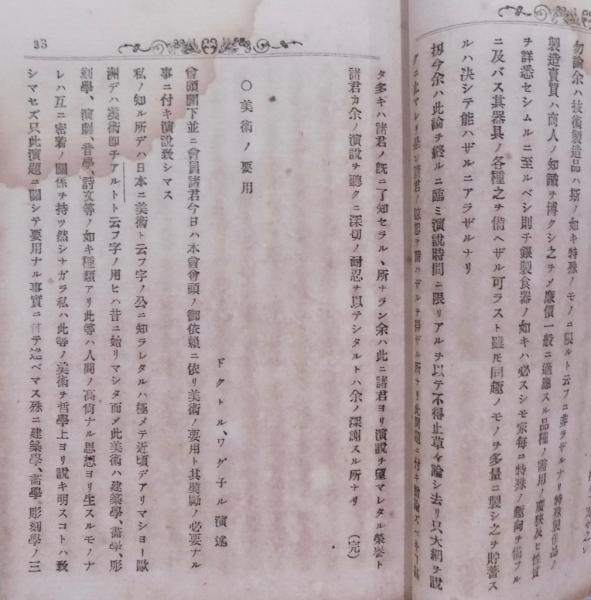 勿論余ハ技術製造品ハ斯ノ如キ特殊ノモノニ限ルト云フニ非ラザルナリ特殊製作品ノ
製造賣買ハ商人ノ知識ヲ博クシ之ヲメ廉價一般ニ適應スル品種ノ需用ノ廣狹及ヒ性質
ヲ詳悉セシムルニ至ルベシ則チ銀製食器ノ如キハ必スシモ家每ニ特殊ノ趣向ヲ備フル
ニ及バス其器具ノ各種之ヲ備ヘザル可ラスト雖モ同趣ノモノヲ多量ニ製シ之ヲ貯蓄ス
ルハ决シテ能ハザルニアラザルナリ
扨今余ハ此論ヲ終ルニ臨ミ演說時間ニ限リアルヲ以テ不得止草々論シ去リ只大綱ヲ說
タ多キハ諸君ノ旣ニ了知セラル、所ナラン余ハ此ニ諸君ヨリ演說ヲ望マレタル榮譽ト
諸君カ余ノ演說ヲ聽クニ深切ノ耐忍ヲ以テシタルトハ余ノ深謝スル所ナリ (完)
○美術ノ要用
ドクトル、ワグ子ル演述
會頭閣下並ニ會員諸君今日ハ本會會頭ノ御依賴ニ依リ美術ノ要用ト其獎勵ノ必要ナル
事ニ付キ演說致シマス
私ノ知ル所デハ日本ニ美術ト云フ字ノ公ニ知ラレタルハ極メテ近頃デアリマシヨー歐
洲デハ美術卽チアルトト云フ字ノ用ヒハ昔ニ始リマシタ而メ此美術ハ建築學、畵學、彫
刻學、演劇、音學、詩文等ノ如キ種類アリ此等ハ人間ノ高尙ナル思想ヨリ生スルモノナ
レハ互ニ密着ノ關係ヲ持ツ然シナガラ私ハ此等ノ美術ヲ哲學上ヨリ說キ明スコトハ致
シマセズ只此演題ニ關シテ要用ナル事實ニ テ述ベマス殊ニ建築學、畵學、彫刻學ノ三
33